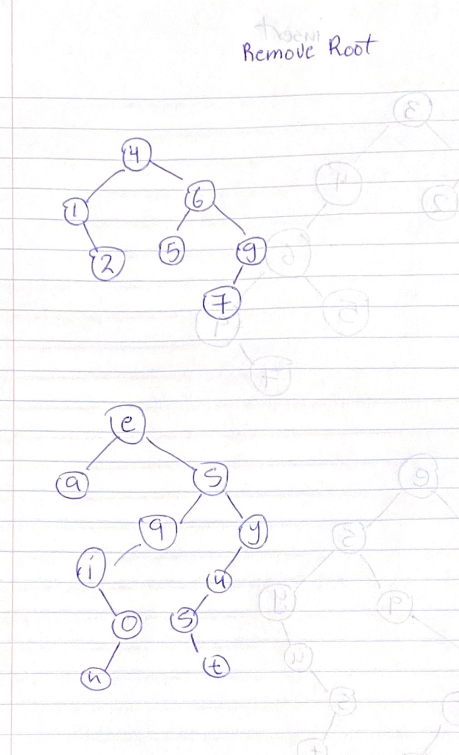 Remove Root
4
1 6
2 5 9
7
e
a s
q y
i u
o s
n t